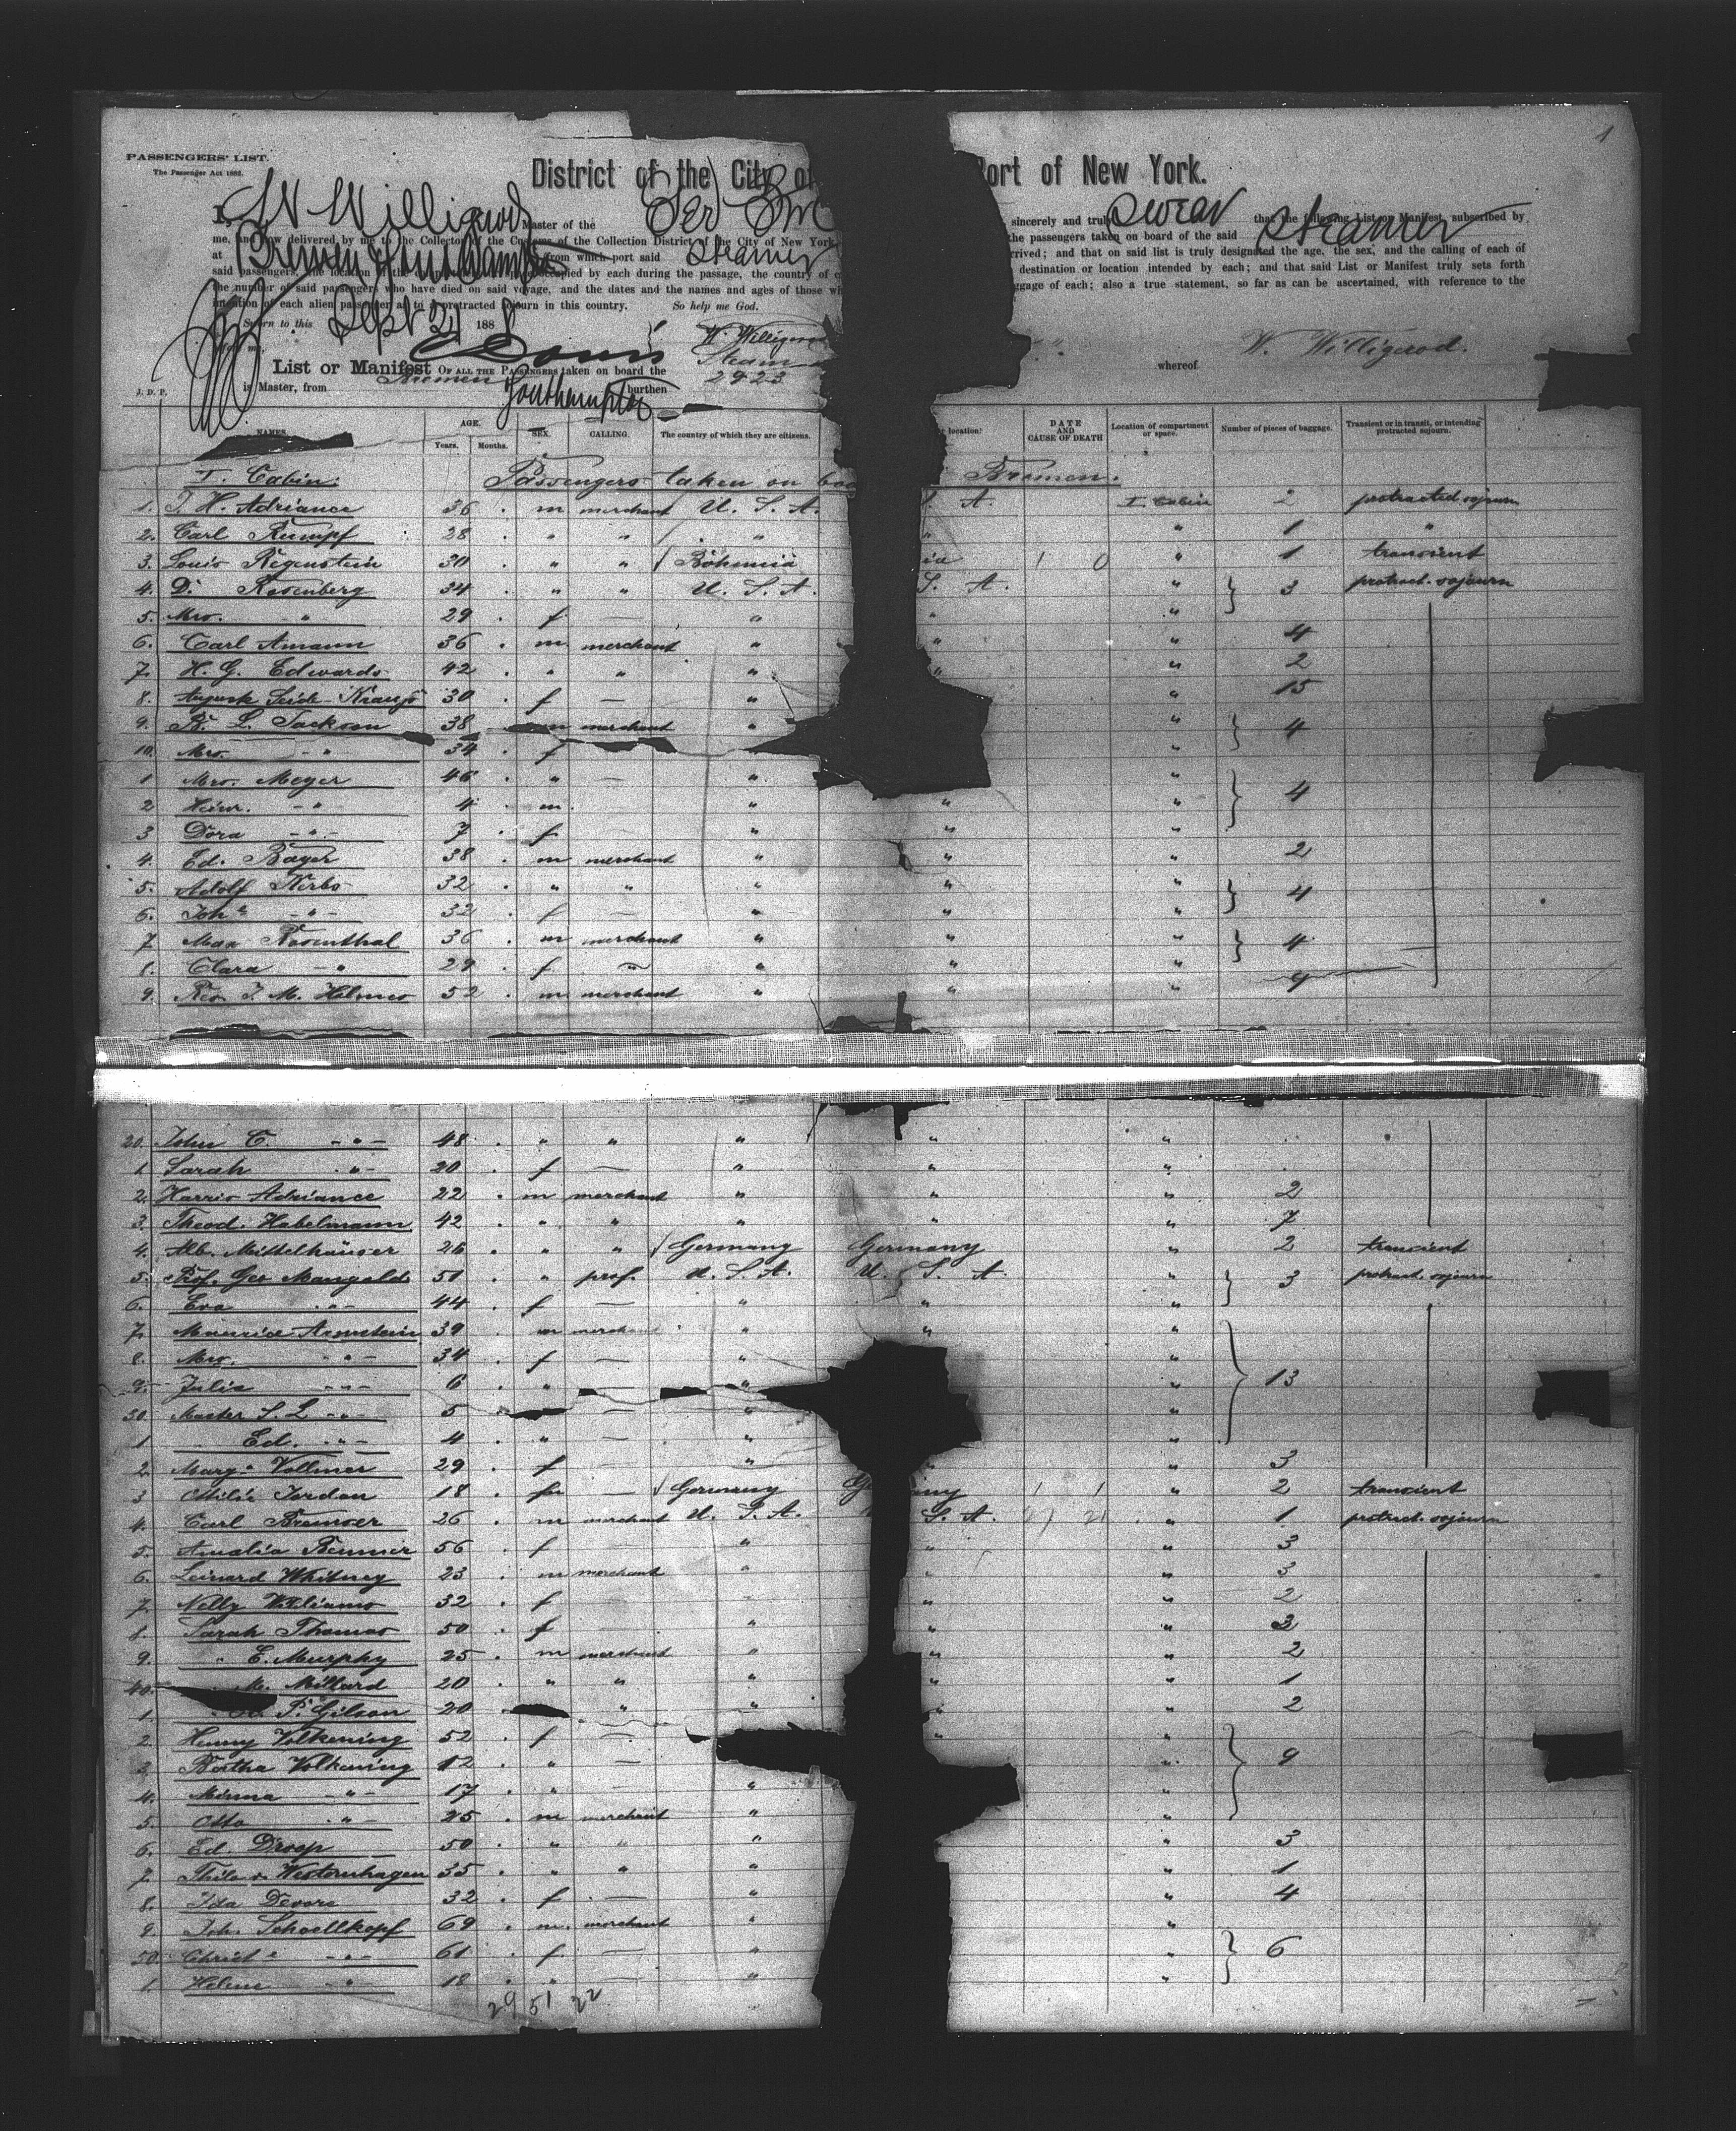 1
PASSENGERS' LIST.
The Passenger Act 1882.
District of the City of Port of New York.
I, W Willigerod Master of the Ger sincerely and truly swear that the following List or Manifest, subscribed by
me, and now delivered by me to the Collector of the Customs of the Collection District of the City of New York the passengers taken on board of the said Steamer
at Bremen & Southampton from which port said Steamer rrived; and that on said list is truly designated the age, the sex, and the calling of each of
said passengers, the location of the occupied by each during the passage, the country of c destination or location intended by each; and that said List or Manifest truly sets forth
the number of said passengers who have died on said voyage, and the dates and the names and ages of those wh ggage of each; also a true statement, so far as can be ascertained, with reference to the
intention of each alien passenger as to a protracted sojourn in this country. So help me God.
Sworn to this Sept 21 188
W. Willigerod
List or Manifest OF ALL THE PASSENGERS taken on board the Steam whereof W. Willigerod.
J. D. P. is Master, from Bremen Southampton burthen 2923
NAMES. AGE. Years. Months. SEX. CALLING. The country of which they are citizens. location: DATE AND CAUSE OF DEATH Location of compartment or space. Number of pieces of baggage. Transient or in transit, or intending protracted sojourn.
I. Cabin. Passengers taken on boa Bremen.
1. J. H. Adriance 36 . m merchant U. S. A. A. I Cabin 2 protracted sojourn
2. Carl Rumpf 28 . " " " " " 1 "
3. Louis Regenstein 30 " " Bohemia ia 1 0 " 1 transient
4. D. Rosenberg 34 . " " U. S. A. S. A. " 3 protract. sojourn
5. Mrs. " 29 f — " " "
6. Carl Amann 36 . m merchant " " " 4
7. H. G. Edwards 42 . " " " " " 2
8. August Seide-Krauss 30 . f — " " 15
9. B. L. Jackson 38 m merchant " " 4
10. Mrs. - " 34 . f " "
1 Mrs. Meyer 46 . " — " " 4
2 Heinr. - " - 4 . m. " " "
3 Dora - " - 7 . f — " " "
4. Ed. Bayer 38 . m merchant " " " 2
5. Adolf Nerbs 32 . " " " " " 4
6. Joha - " - 32 . f — " " "
7 Max Rosenthal 36 . m merchant " " " 4
8. Clara - " 29 . f ~ " " "
9. Rev J. M. Holmes 52 . m merchant " " " 9
20. John C. - " - 48 . " " " " "
1. Sarah - " - 20 . f — " " "
2. Harris Adriance 22 . m merchant " " " 2
3. Theod. Habelmann 42 . " " " " " 7
4. Alb. Mittelhäuser 26 . " " Germany Germany " 2 transient
5. Prof. Geo Mangold 51 . " prof. U. S. A. U. S. A. " 3 protract. sojourn
6. Eva - " - 44 . f — " " "
7. Maurice Arnstein 39 m merchant " " " 13
8. Mrs. - " - 34 . f — " "
9. Julia - " - 6 . " — " "
30. Master S. L - " - 5 . — " "
1 Ed. - " - 4 . " — " "
2. Marg.a Vollmer 29 . f — " " " 3
3 Ottilie Jordan 18 . f — Germany Ge any 1 1 " 2 transient
4. Carl Bremser 26 . m merchant U. S. A. S. A. " 1. protract. sojourn
5. Amalia Bremser 56 . f " " " 3
6. Leinard Whitney 23 . m merchant " " " 3
7. Nelly Williams 32 . f " " 2
8. Sarah Thomas 50 . f " " " 3
9. " E. Murphy 25 . m merchant " " " 2
40. M. Millard 20 . " " " " " 1
1. P. Gilson 20 . " " " " 2
2. Henny Volkening 52 . f — " " 9
3. Bertha Volkening 12 " — "
4. Minna - " - 17 . " — " "
5. Otto - " - 25 . m merchant " "
6. Ed. Droop 50 . " " " " 3
7. Thilo v. Westernhagen 35 . " " " " 1
8. Ida Devore 32 . f — " " 4
9. Joh. Schoellkopf 69 . m. merchant " " 6
50. Christ.a - " - 61 . f — " "
1. Helene - " - 18 . " — " "
29 51 22